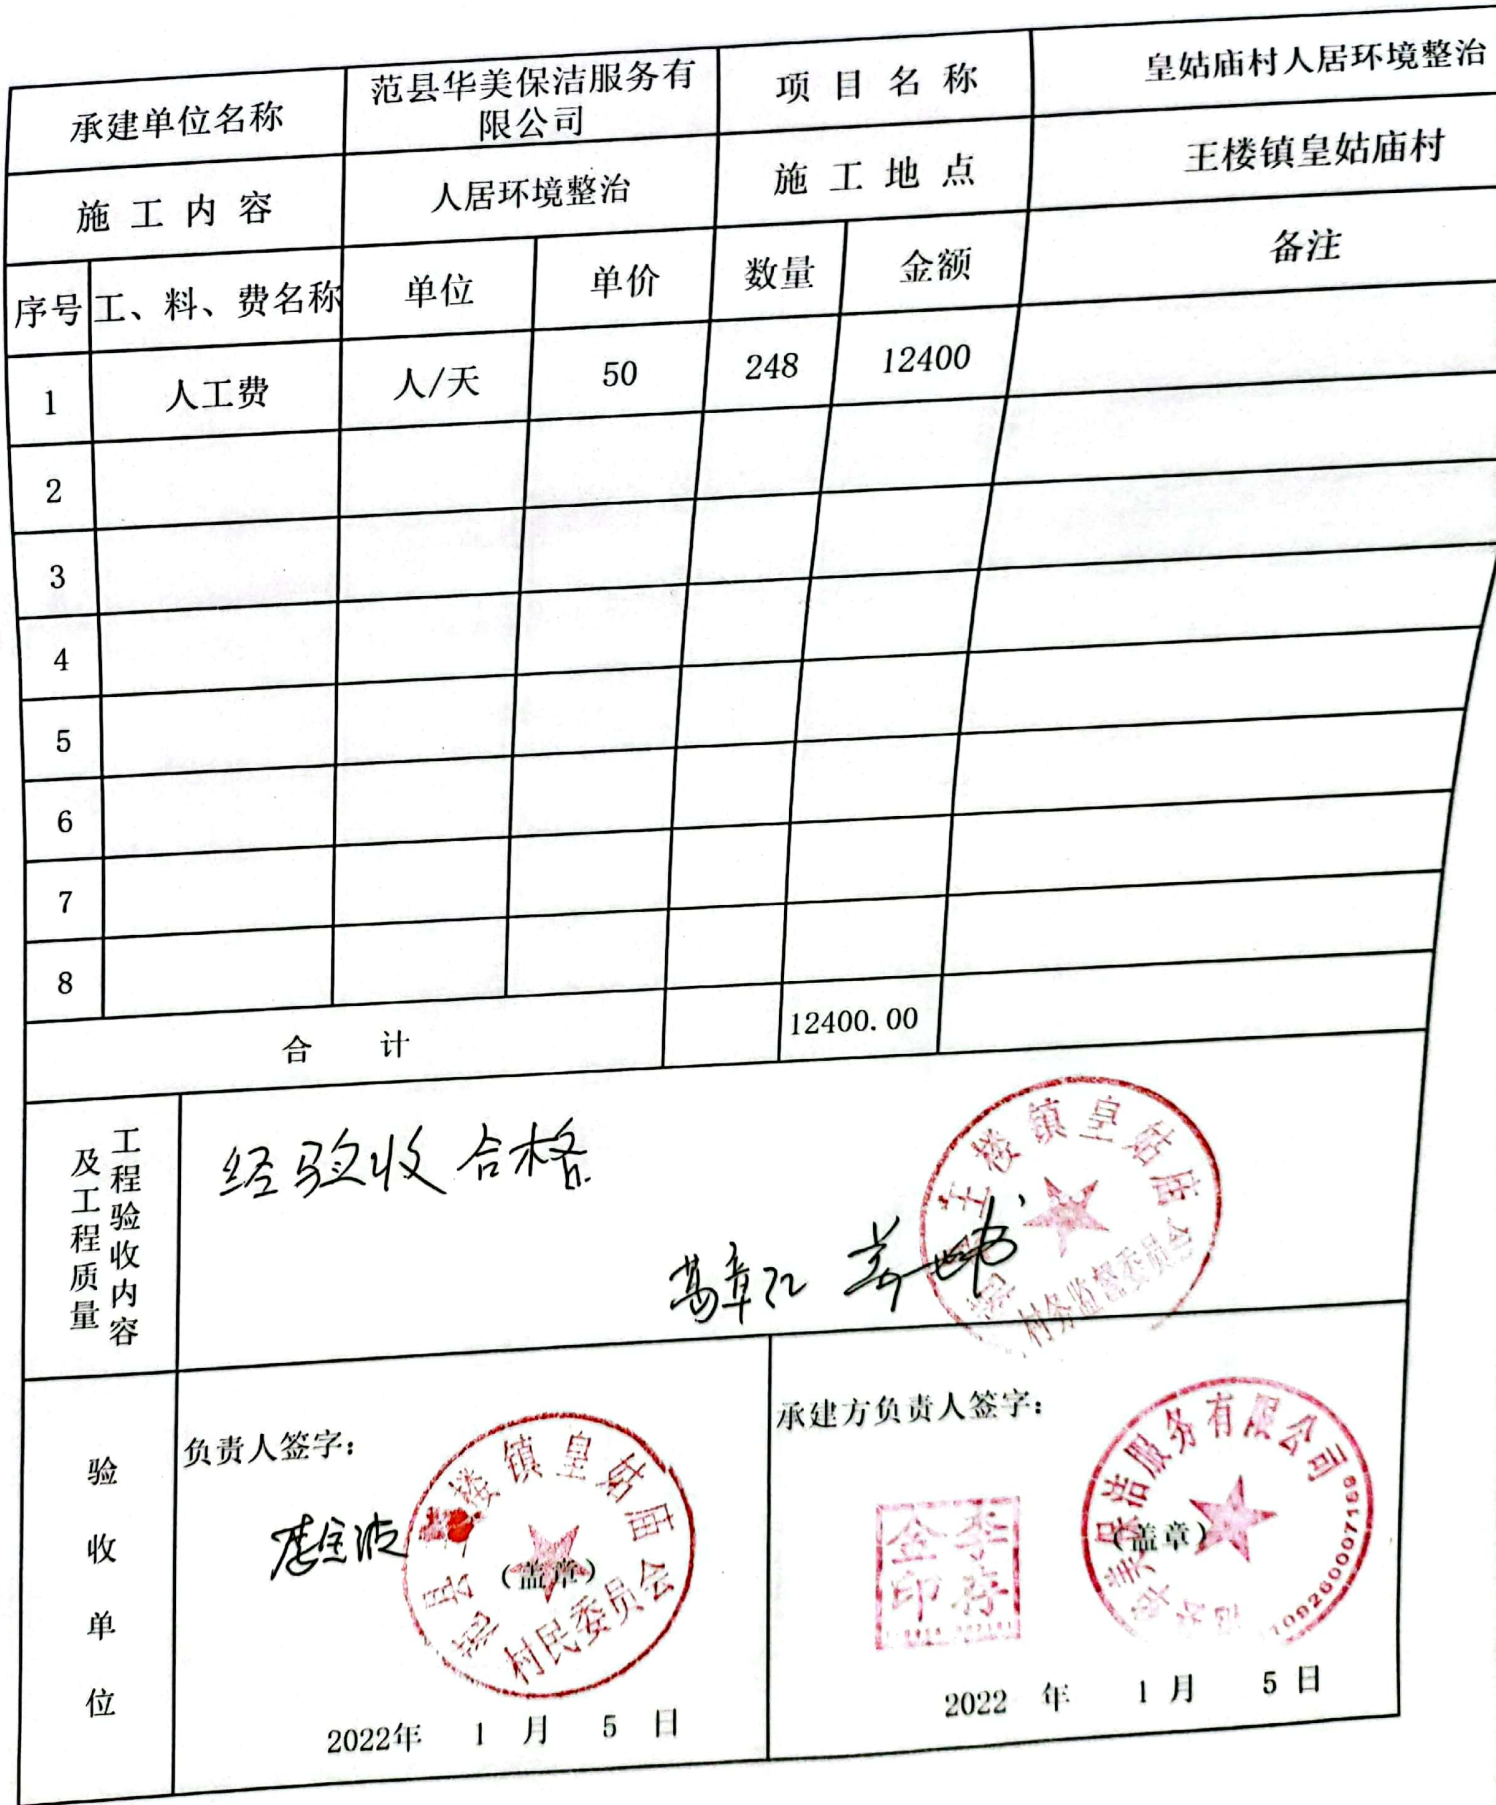 承建单位名称
范县华美保洁服务有
限公司
项目名称
皇姑庙村人居环境整治
施工内容
人居环境整治
施工地点
王楼镇皇姑庙村
序号 工、料、费名称 单位 单价 数量 金额 备注
1 人工费 人/天 50 248 12400
2
3
4
5
6
7
8
合 计 12400.00
工程验收内容
及工程质量
经验收合格
王楼镇皇姑庙
村务监督委员会
验收单位
负责人签字:
范县王楼镇皇姑庙
村民委员会
(盖章)
2022年 1 月 5 日
承建方负责人签字:
李存
金印
范县华美保洁服务有限公司
(盖章)
2022 年 1 月 5 日